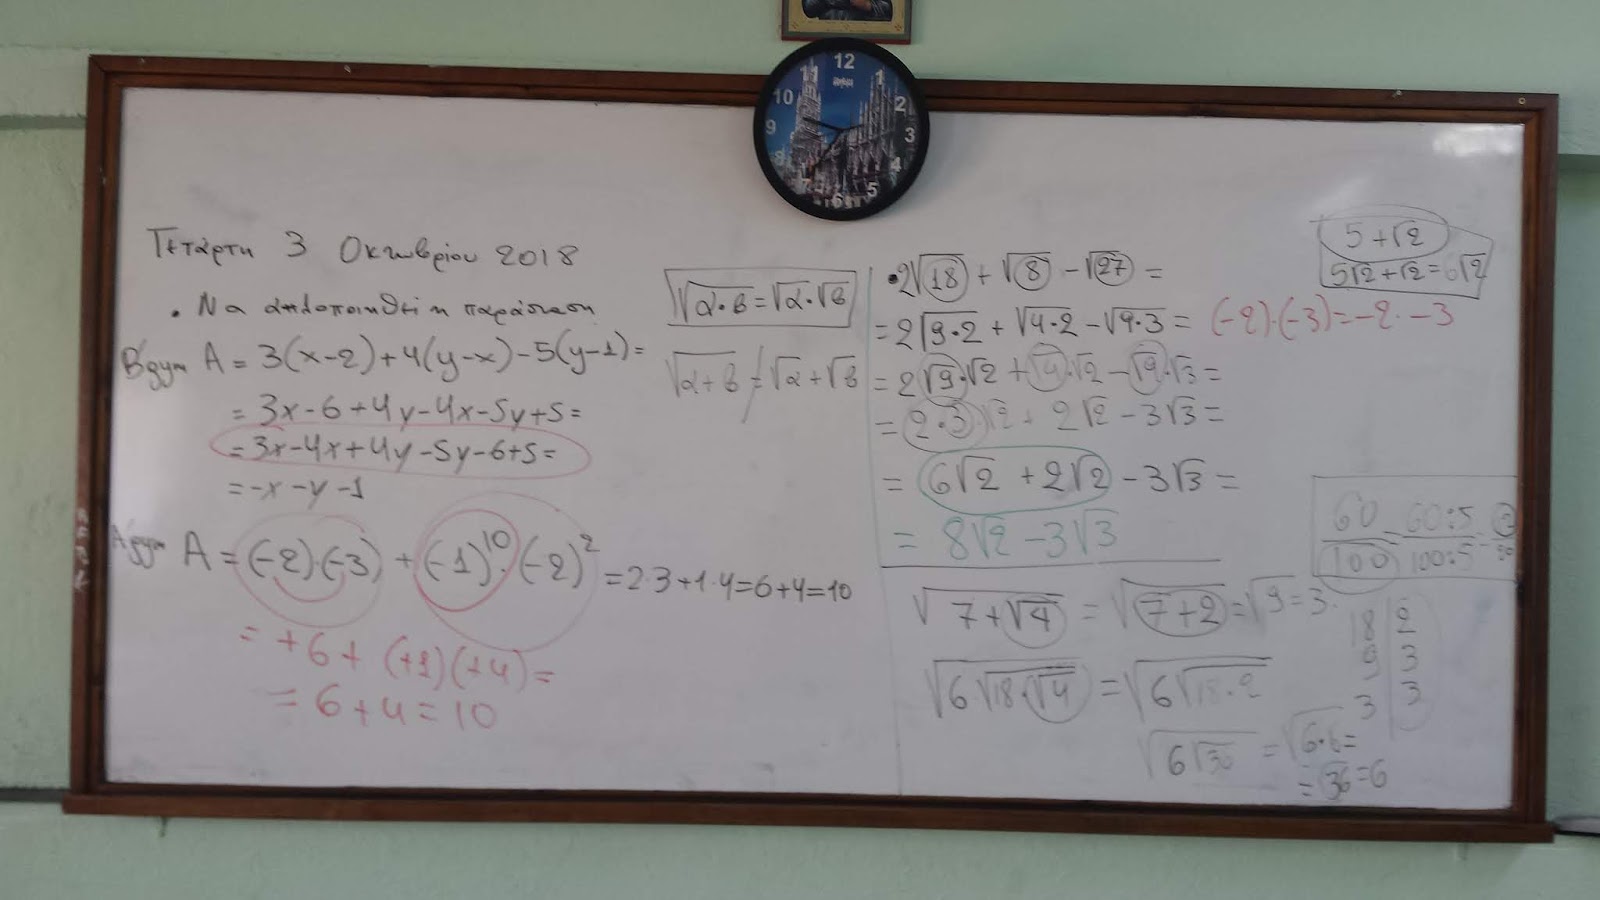 Τετάρτη 3 Οκτωβρίου 2018
• Να απλοποιηθεί η παράσταση
Β'γυμ A = 3(x-2)+4(y-x)-5(y-1)=
= 3x-6+4y-4x-5y+5=
= 3x-4x+4y-5y-6+5=
= -x-y-1
Α'γυμ A = (-2)·(-3) + (-1)¹⁰·(-2)² = 2·3+1·4=6+4=10
= +6+(+1)(+4)=
= 6+4=10
√α·β = √α·√β
√α+β ≠ √α+√β
• 2√18 + √8 - √27 =
= 2√9·2 + √4·2 - √9·3 =
(-2)·(-3)=-2·-3
= 2√9·√2 + √4·√2 - √9·√3 =
= 2·3·√2 + 2√2 - 3√3 =
= 6√2 + 2√2 - 3√3 =
= 8√2 - 3√3
5+√2
5√2+√2=6√2
60/100 = 60:5/100:5 =
√7+√4 = √7+2 = √9 = 3.
√6√18·√4 = √6√18·2
√6√36 = √6·6 =
= √36 = 6
18 | 2
9 | 3
3 | 3
12
11
1
10
2
9
3
8
4
7
5
6